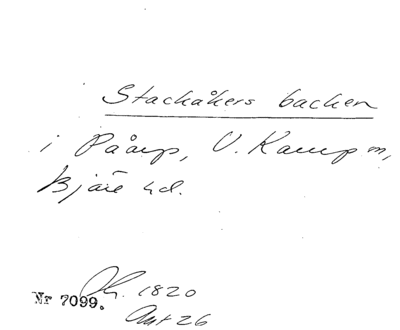 Stackåkers backen
i Påarp, V. Karup sn,
Bjäre hd.
Nr 7099. Lh. 1820
Akt 26